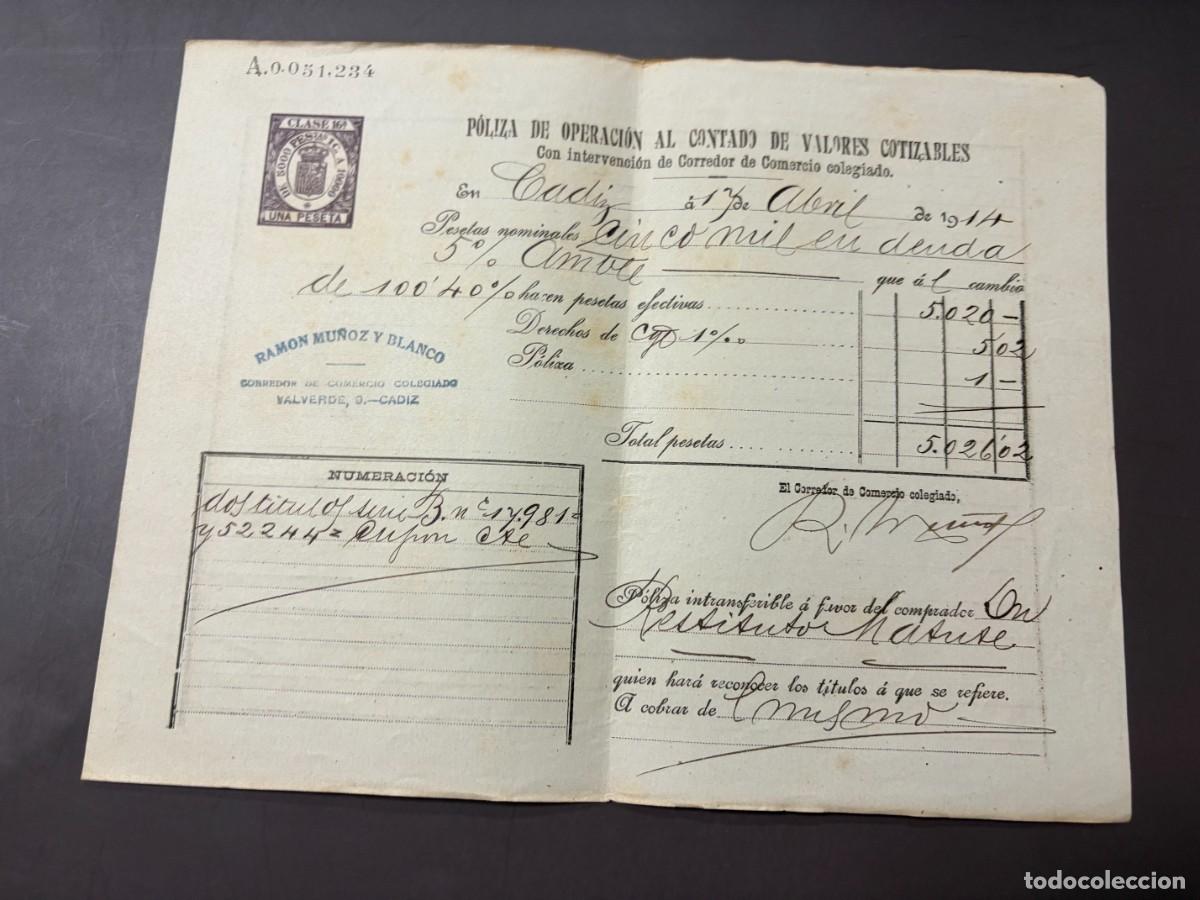 A.0.051.234
CLASE 16ª
DE 5000 PESTAS 1 C. A 10000
UNA PESETA
PÓLIZA DE OPERACIÓN AL CONTADO DE VALORES COTIZABLES
Con intervención de Corredor de Comercio colegiado.
En Cadiz á 17 de Abril de 1914
Pesetas nominales Cinco mil en deuda
5% Amble que ál cambio
de 100'40% hacen pesetas efectivas 5.020 —
Derechos de Cge 1%00 5'02
Póliza 1 —
Total pesetas 5.026'02
RAMON MUÑOZ Y BLANCO
CORREDOR DE COMERCIO COLEGIADO
VALVERDE, 9.—CADIZ
NUMERACIÓN
dos titulos serie B. nº 17.981
y 52244 Cupon Cte
El Corredor de Comercio colegiado,
R. Muñoz
Póliza intransferible á favor del comprador Dn
Restituto Matute
quien hará reconocer los títulos á que se refiere.
A cobrar de l mismo
todocoleccion